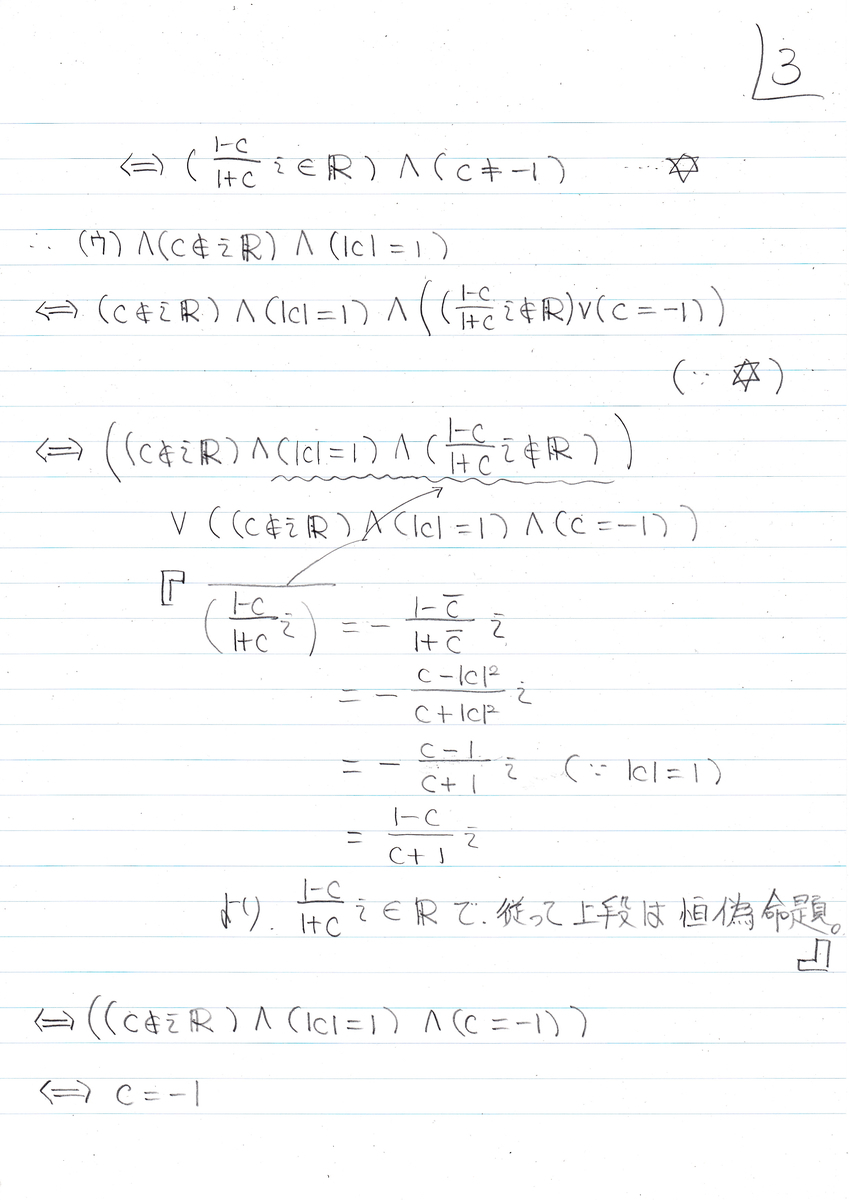 3
⇔ ( (1-c)/(1+c) i ∈ ℝ ) ∧ ( c ≠ -1 ) ‥‥✡
∴ (ウ) ∧ (c ∉ iℝ) ∧ (|c| = 1)
⇔ (c ∉ iℝ) ∧ (|c| = 1) ∧ ( ( (1-c)/(1+c) i ∉ ℝ ) ∨ (c = -1) )
(∵ ✡)
⇔ ( (c ∉ iℝ) ∧ (|c| = 1) ∧ ( (1-c)/(1+c) i ∉ ℝ ) )
∨ ( (c ∉ iℝ) ∧ (|c| = 1) ∧ (c = -1) )
『 \overline{( (1-c)/(1+c) i )} = - (1-c̄)/(1+c̄) i
= - (c-|c|²)/(c+|c|²) i
= - (c-1)/(c+1) i (∵ |c| = 1)
= (1-c)/(c+1) i
より. (1-c)/(1+c) i ∈ ℝ で. 従って上段は恒偽命題。
』
⇔ ( (c ∉ iℝ) ∧ (|c| = 1) ∧ (c = -1) )
⇔ c = -1